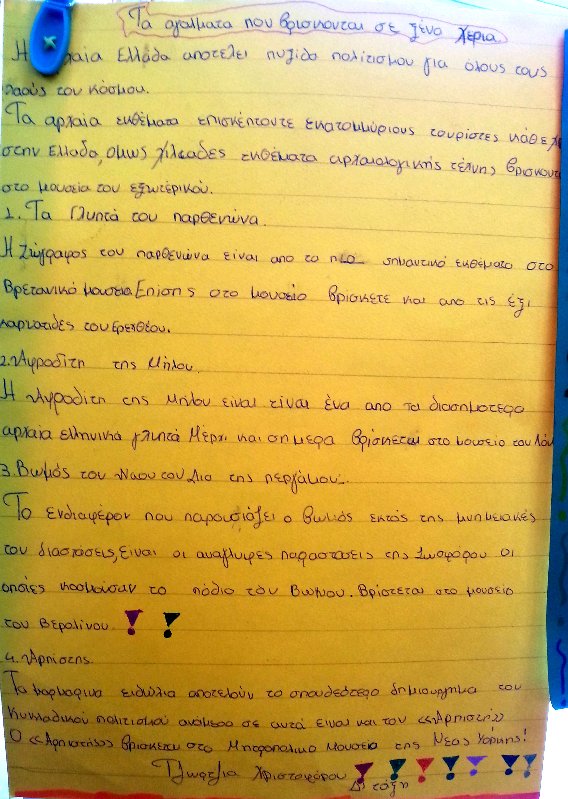 Τα αγαλματα που βρισκονται σε ξένα χέρια
Η Ελλάδα αποτελεί πυξίδα πολιτισμού για όλους τους
λαούς του κόσμου.
Τα αρχαία εκθέματα επισκέπτονται εκατομμύριους τουρίστες κάθε
στην Ελλάδα, όμως χιλιάδες εκθέματα αρχαιολογικής τέχνης βρισκοντ
στο μουσεία του εξωτερικού.
1. Τα Γλυπτά του παρθενώνα.
Η Ζωγραφος του παρθενώνα είναι απο τα πιο σημαντικά εκθέματα στο
Βρετανικό μουσείο Επίσης στο μουσείο βρισκετε και απο τις έξι
καρυατιδες του ερεχθέου.
2. Αφροδίτη της Μήλου
Η Αφροδίτη της Μήλου ειναι είναι ένα απο τα διασημοτερα
αρχαία ελληνικά γλυπτά Μέχρι και σημερα βρίσκεται στο μουσείο του Λού
3. Βωμός του Ναου του Δια της περγάμου.
Το ενδιαφέρον που παρουσιάζει ο βωμός εκτός της μνημειακές
του διαστάσεις, είναι οι αναγλυφες παραστασεις της Ζωοφορου οι
οποίες κοσμουσαν το πόδιο του Βωμου. Βρίσκεται στο μουσείο
του Βερολίνου
4. Αρπιστης
Τα μαρμαρινα ειδώλια αποτελούν το σπουδεότερο δημιουργημα του
Κυκλαδικού πολιτισμού ανάμεσα σε αυτά ειναι και τον «Αρπιστή»
Ο «Αρπιστής» βρισκεται στο Μητροπολιτικο Μουσείο της Νέας Υόρκης!
Γλυκερία Χριστοφόρου
Δ' τάξη